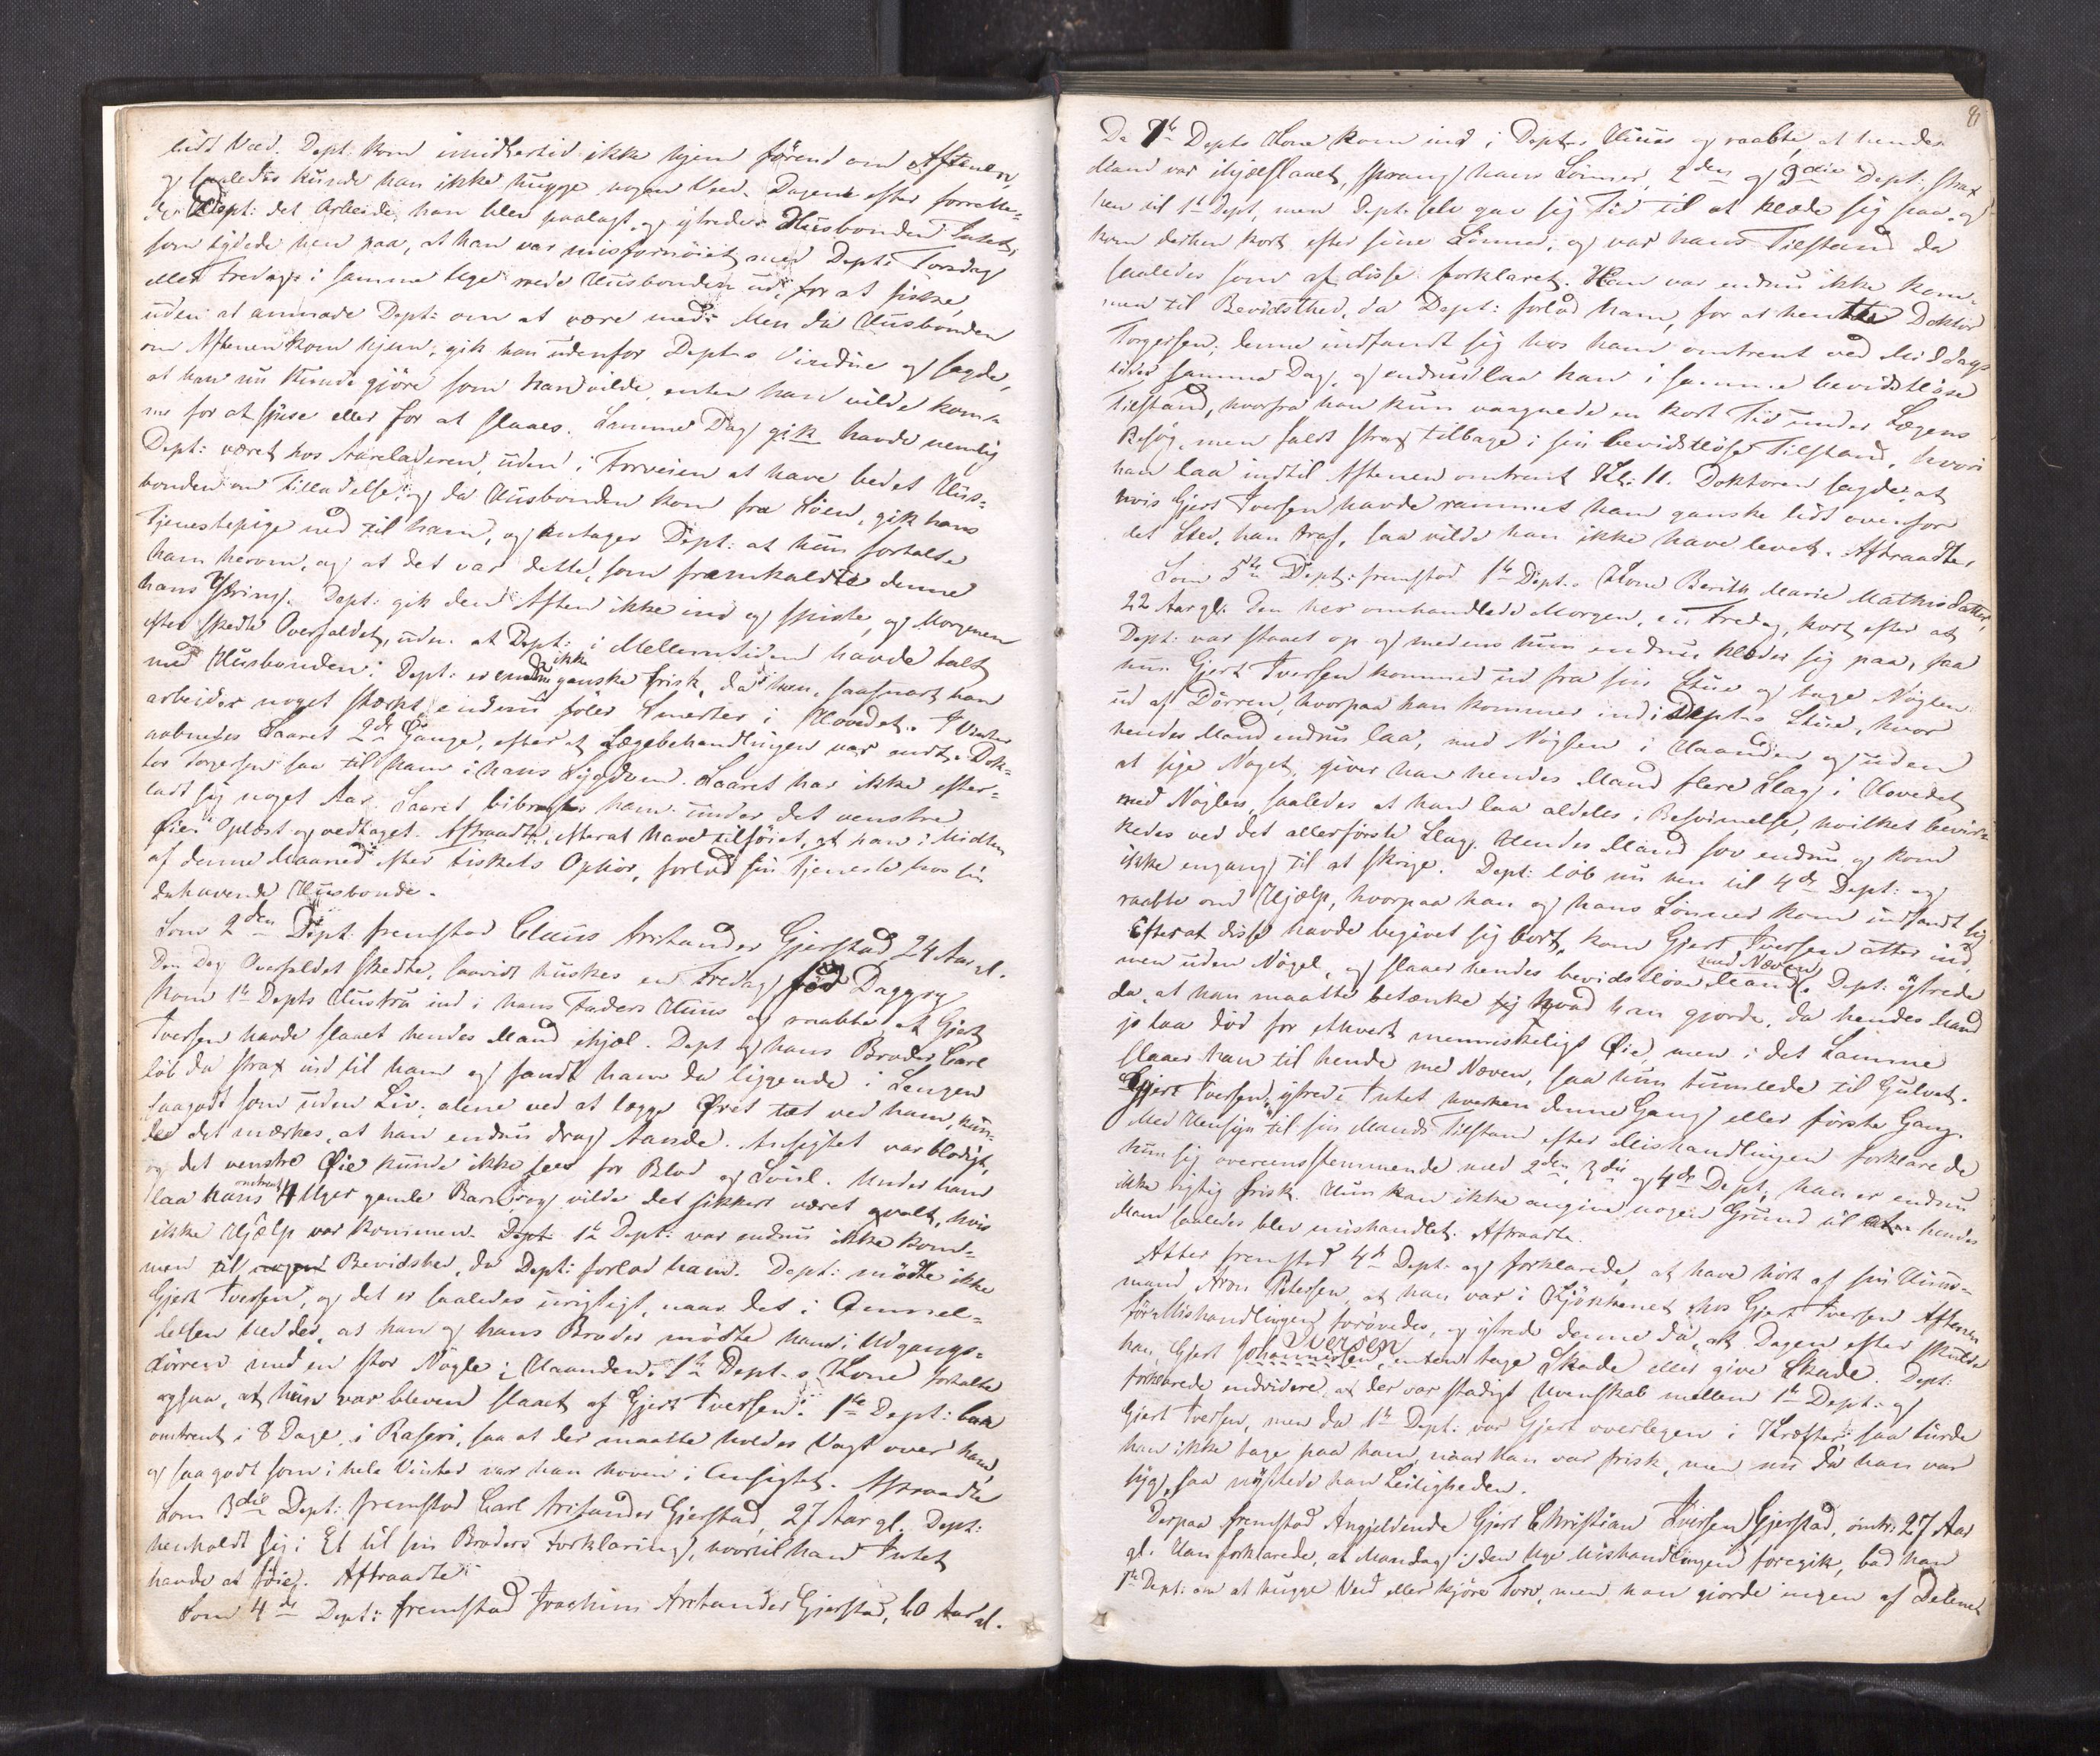 lidt Ved. Dept: kom imidlertid ikke hjem förend om Aftenen,
og saaledes kunde han ikke hugge nogen Ved. Dagen efter forrette-
de Dept: det Arbeide, han blev paalagt, og ytrede Husbonden Intet,
som tydede hen paa, at han var misfornöiet med Dept: Torsdag
eller Fredag i samme Uge roede Husbonden ud, for at fiske,
uden at anmode Dept: om at være med. Men da Husbonden
om Aftenen kom hjem, gik han udenfor Dept-s Vindue og sagde,
at han nu kunde gjöre som han vilde, enten han vilde kom-
me for at spise eller for at slaaes. Samme Dag gik havde nemlig
Dept: været hos Aareladeren, uden i Forveien at have bedet Hus-
bonden om Tilladelse, og da Husbonden kom fra Söen, gik hans
Tjenestepige ned til ham, og antager Dept: at hun fortalte
ham herom, og at det var dette, som fremkaldte denne
hans Yttring. Dept: gik den Aften ikke ind og spiste, og Morgenen
efter skedte Overfaldet, uden at Dept: i Mellemtiden havde talt
med Husbonden. Dept: er endnu ikke ganske frisk, da han, saasnart han
arbeider noget stærkt, endnu föler Smerter i Hovedet. I Vinter
aabnedes Saaret 2de Gange, efter at Lægebehandlingen var endt. Dok-
tor Torgersen saa til ham i hans Sygdom. Saaret har ikke efter-
ladt sig noget Aar. Saaret bibragtes ham under det venstre
Öie. Oplæst og vedtaget. Aftraadte, efterat have tilföiet, at han i Midten
af denne Maaned efter Fiskets Ophör, forlod sin Tjeneste hos sin
davhavende Husbonde.
Som 2den Dept: fremstod Claus Aristander Gjerstad 24 Aar gl.
Den Dag Overfaldet skedte, saavidt huskes en Fredag för Daggry
kom 1ste Depts Hustru ind i hans Faders Huus og raabte, at Gjert
Iversen havde slaaet hendes Mand ihjel. Dept og hans Broder Carl
löb da strax ind til ham og fandt ham da liggende i Sengen
saagodt som uden Liv; alene ved at lægge Öret tæt ved ham, kun-
de det mærkes, at han endnu drog Aande. Ansigtet var blodigt,
og det venstre Öie kunde ikke sees for Blod og Svul. Under ham
laa hans omtrent 4 Uger gamle Barn, og vilde det sikkert været qvalt, hvis
ikke Hjælp var kommen. Dept 1ste Dept: var endnu ikke kom-
men til nogen Bevidsthed, da Dept: forlod ham. Dept: mödte ikke
Gjert Iversen, og det er saaledes urigtigt, naar det i Anmel-
delsen hedder, at han og hans Broder mödte ham i Udgangs-
dörren med en stor Nögle i Haanden. 1ste Dept-s Kone fortalte
ogsaa, at hun var bleven slaaet af Gjert Iversen. 1ste Dept: laa
omtrent i 8 Dage i Raseri, saa at der maatte holdes Vagt over ham,
og saagodt som i hele Vinter var han hoven i Ansigtet. Aftraadte
Som 3die Dept: fremstod Carl Arisander Gjerstad, 27 Aar gl. Dept:
henholdt sig i Et til sin Broders Forklaring, hvortil han Intet
havde at föie. Aftraadte
Som 4de Dept: fremstod Joachim Aristander Gjerstad, 60 Aar gl.
8
Da 1ste Depts Kone kom ind i Dept-s Huus og raabte, at hendes
Mand var ihjælslaaet, sprang hans Sönner, 2den og 3die Dept:, strax
hen til 1ste Dept, men Dept: selv gav sig Tid til at klæde sig paa, og
kom derhen kort efter sine Sönner, og var hans Tilstand da
saaledes som af disse forklaret. Han var endnu ikke kom-
men til Bevidsthed, da Dept: forlod ham, for at hente Doktor
Torgersen; denne indfandt sig hos ham omtrent ved Middags
tider samme Dag, og endnu laa han i samme bevidstlöse
Tilstand, hvorfra han kun vaagnede en kort Tid under Lægens
Besög, men faldt strax tilbage i sin bevidstlöse Tilstand, hvori
han laa indtil Aftenen omtrent Kl: 11. Doktoren sagde, at
hvis Gjert Iversen havde rammet ham ganske lidt ovenfor
det Sted, han traf, saa vilde han ikke have levet. Aftraadte.
Som 5te Dept: fremstod 1ste Dept-s Kone Berith Marie Mathisdatter,
22 Aar gl. Den her omhandlede Morgen, en Fredag, kort efter at
Dept: var staaet op og medens hun endnu klæder sig paa, saa
hun Gjert Iversen kommed ud fra sin Stue og tage Nöglen
ud af Dörren, hvorpaa han kommer ind i Dept-s Stue, hvor
hendes Mand endnu laa, med Nöglen i Haanden og uden
at sige Noget, giver han hendes Mand flere Slag i Hovedet
med Nöglen, saaledes at han laa aldeles i Besvimelse, hvilket bevir-
kedes ved det allerförste Slag. Hendes Mand sov endnu og kom
ikke engang til at skrige. Dept: löb nu hen til 4de Dept: og
raabte om Hjælp, hvorpaa han og hans Sönner kom indfandt sig.
Efterat disse havde begivet sig bort, kom Gjert Iversen atter ind,
men uden Nögel, og slaaer hendes bevidstlöse Mand med Næven. Dept: ÿtrede
da, at han maatte betænke sig hvad han gjorde, da hendes Mand
jo laa död for ethvert menneskeligt Öie, men i det Samme
slaaer han til hende med Næven, saa hun tumlede til Gulvet.
Gjert Iversen ytrede Intet hverken denne Gang eller förste Gang.
Med Hensyn til sin Mands Tilstand efter Mishandlingen forklarede
hun sig overeensstemmende med 2den, 3die og 4de Dept; han er endnu
ikke rigtig frisk. Hun kan ikke angive nogen Grund til at hendes
Mand saaledes blev mishandlet. Aftraadte.
Atter fremstod 4de Dept: og forklarede, at have hört af sin Huus-
mand Aron Petersen, at han var i Kjökkenet hos Gjert Iversen Aftenen
för Mishandlingen forövedes, og ytrede denne da, at Dagen efter skulde
han, Gjert Johannesen Iversen, enten tage Skade eller give Skade. Dept:
forklarede endvidere, at der var stadigt Uvenskab mellem 1ste Dept: og
Gjert Iversen, men da 1ste Dept: var Gjert overlegen i Kræfter, saa turde
han ikke tage paa ham, naar han var frisk, men nu da han var
syg, saa nyttede han Leiligheden.
Derpaa fremstod Angjeldende Gjert Christian Iversen Gjerstad, omtr. 27 Aar
gl. Han forklarede, at Mandag i den Uge Mishandlingen foregik, bad han
1ste Dept: om at hugge Ved eller kjöre Torv, men han gjorde ingen af Delene